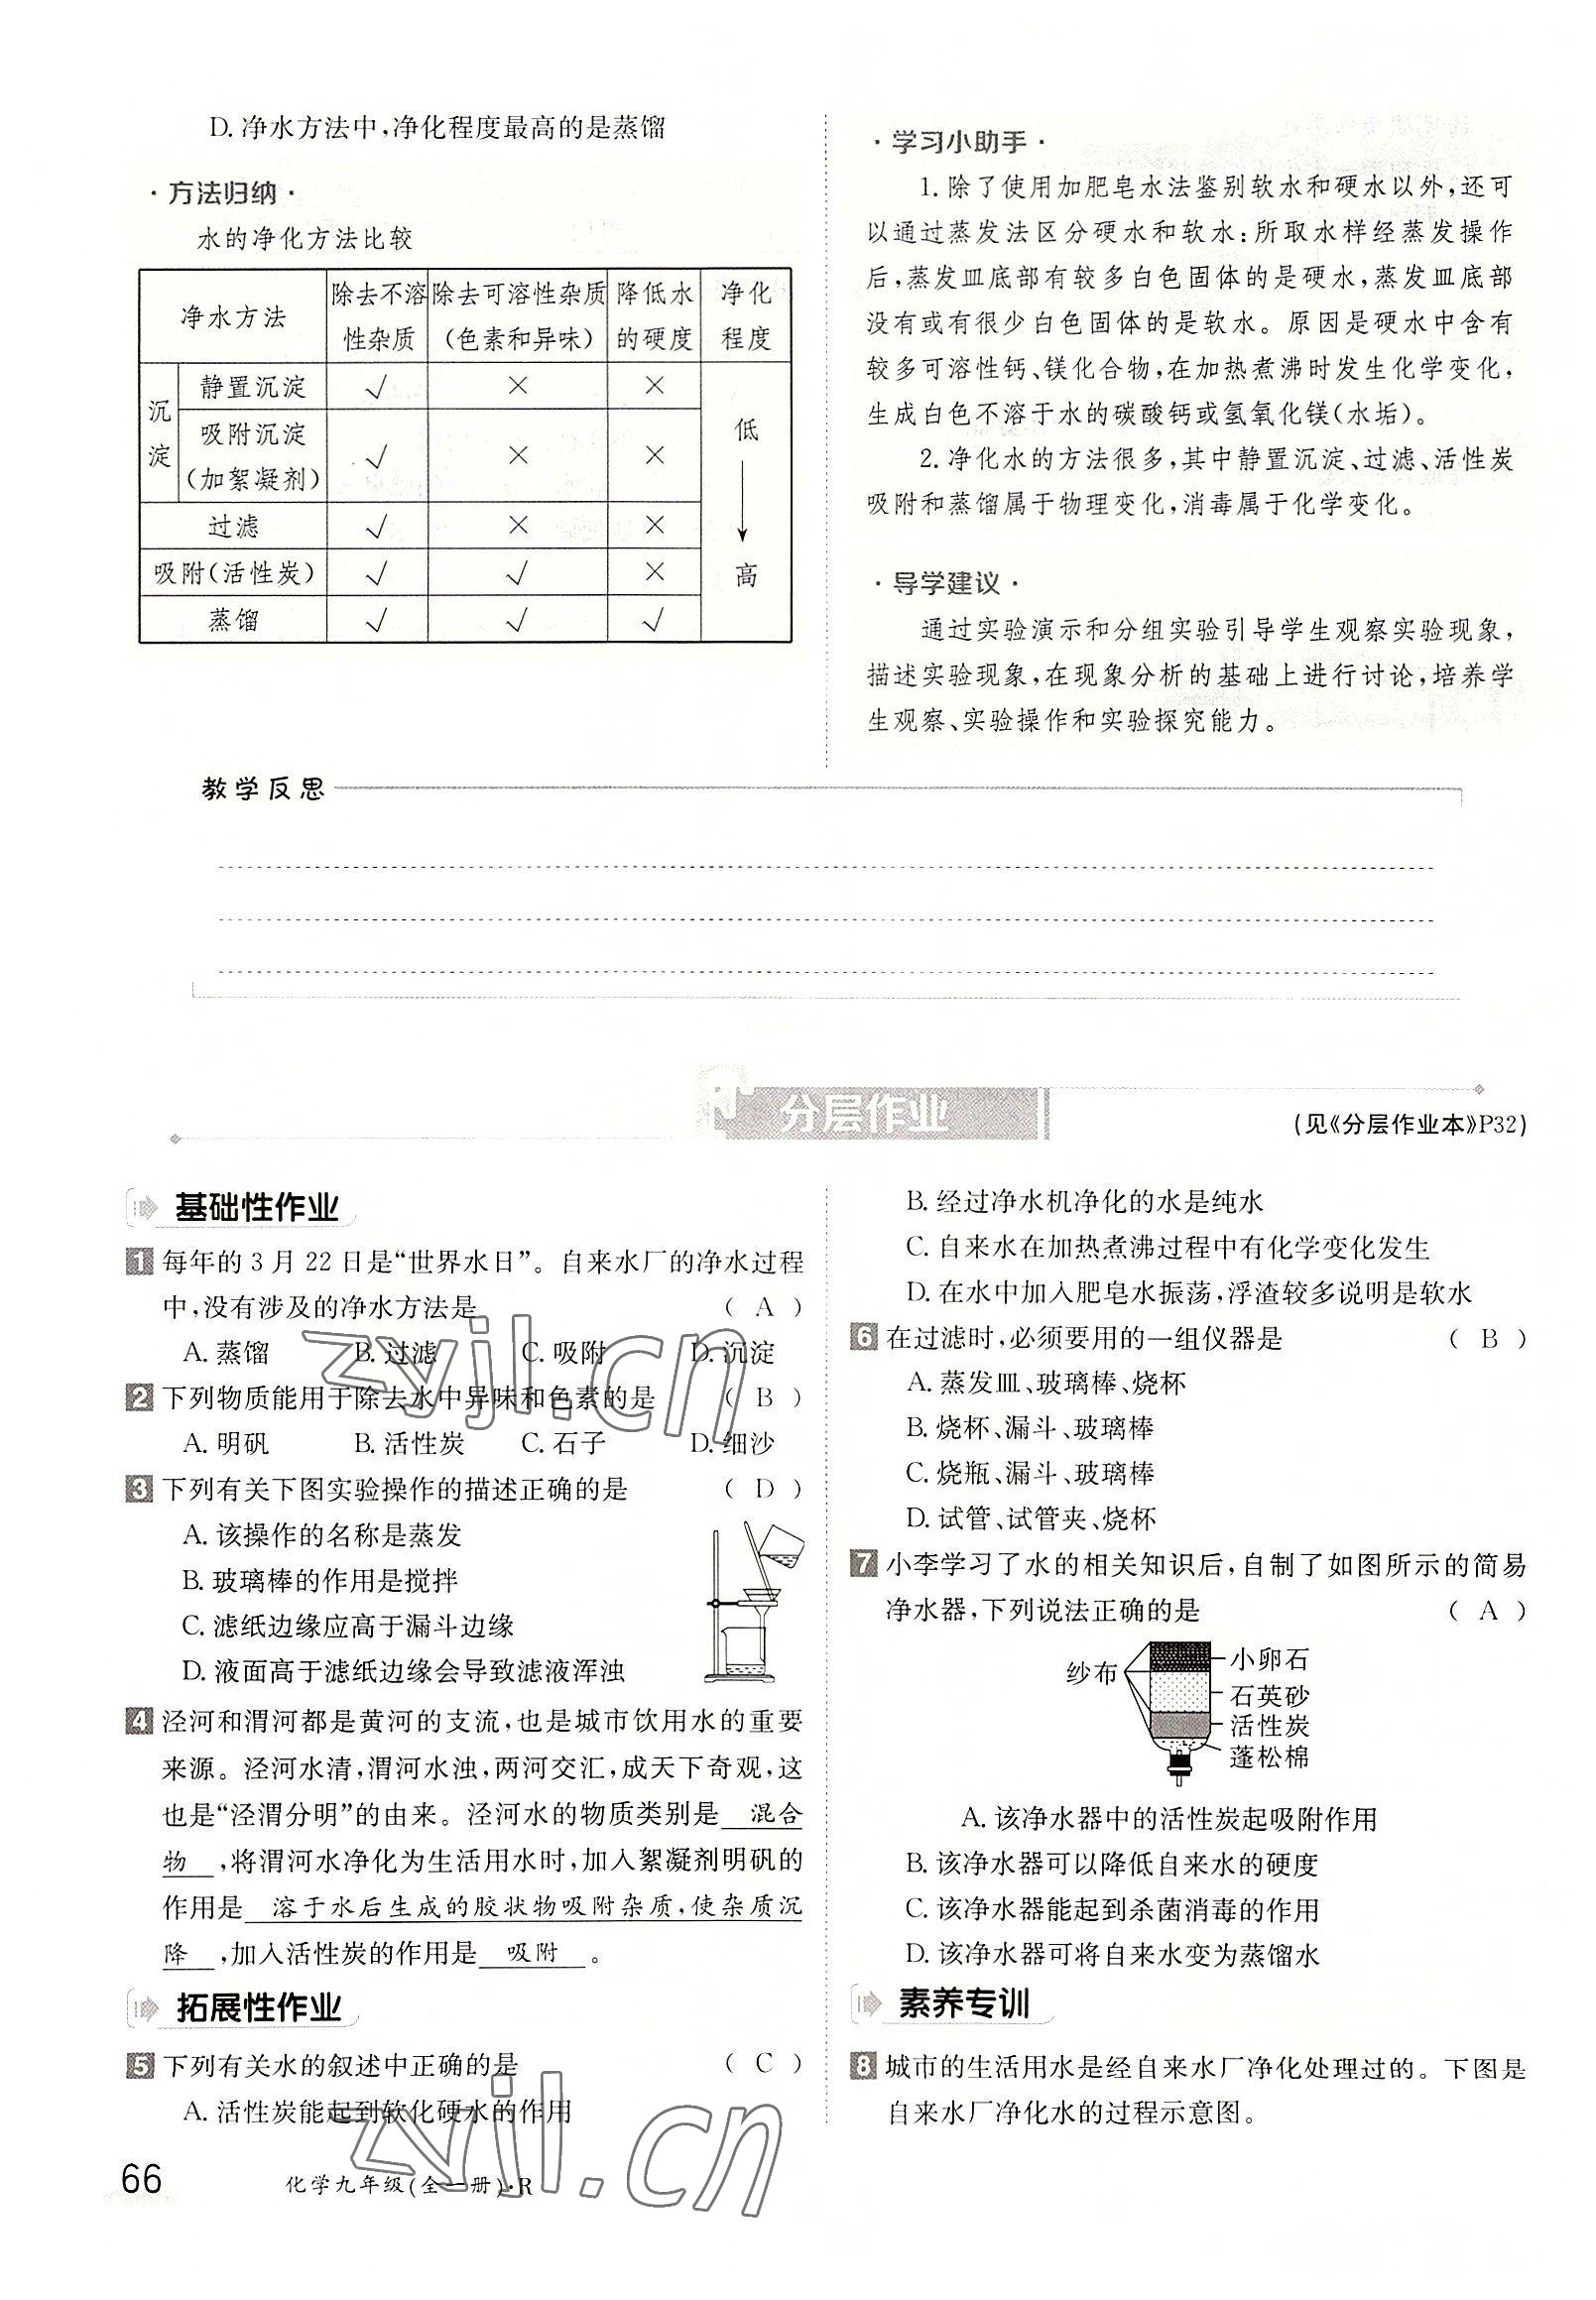 D. 净水方法中,净化程度最高的是蒸馏
·方法归纳·
水的净化方法比较
净水方法 除去不溶性杂质 除去可溶性杂质(色素和异味) 降低水的硬度 净化程度
沉淀 静置沉淀 √ × × 低
吸附沉淀(加絮凝剂) √ × ×
过滤 √ × ×
吸附(活性炭) √ √ × 高
蒸馏 √ √ √
·学习小助手·
1. 除了使用加肥皂水法鉴别软水和硬水以外,还可
以通过蒸发法区分硬水和软水:所取水样经蒸发操作
后,蒸发皿底部有较多白色固体的是硬水,蒸发皿底部
没有或有很少白色固体的是软水。原因是硬水中含有
较多可溶性钙、镁化合物,在加热煮沸时发生化学变化,
生成白色不溶于水的碳酸钙或氢氧化镁(水垢)。
2. 净化水的方法很多,其中静置沉淀、过滤、活性炭
吸附和蒸馏属于物理变化,消毒属于化学变化。
·导学建议·
通过实验演示和分组实验引导学生观察实验现象,
描述实验现象,在现象分析的基础上进行讨论,培养学
生观察、实验操作和实验探究能力。
教学反思
分层作业
(见《分层作业本》P32)
基础性作业
1 每年的 3 月 22 日是“世界水日”。自来水厂的净水过程
中,没有涉及的净水方法是 ( A )
A. 蒸馏 B. 过滤 C. 吸附 D. 沉淀
2 下列物质能用于除去水中异味和色素的是 ( B )
A. 明矾 B. 活性炭 C. 石子 D. 细沙
3 下列有关下图实验操作的描述正确的是 ( D )
A. 该操作的名称是蒸发
B. 玻璃棒的作用是搅拌
C. 滤纸边缘应高于漏斗边缘
D. 液面高于滤纸边缘会导致滤液浑浊
4 泾河和渭河都是黄河的支流,也是城市饮用水的重要
来源。泾河水清,渭河水浊,两河交汇,成天下奇观,这
也是“泾渭分明”的由来。泾河水的物质类别是 混合
物 ,将渭河水净化为生活用水时,加入絮凝剂明矾的
作用是 溶于水后生成的胶状物吸附杂质,使杂质沉
降 ,加入活性炭的作用是 吸附 。
拓展性作业
5 下列有关水的叙述中正确的是 ( C )
A. 活性炭能起到软化硬水的作用
B. 经过净水机净化的水是纯水
C. 自来水在加热煮沸过程中有化学变化发生
D. 在水中加入肥皂水振荡,浮渣较多说明是软水
6 在过滤时,必须要用的一组仪器是 ( B )
A. 蒸发皿、玻璃棒、烧杯
B. 烧杯、漏斗、玻璃棒
C. 烧瓶、漏斗、玻璃棒
D. 试管、试管夹、烧杯
7 小李学习了水的相关知识后,自制了如图所示的简易
净水器,下列说法正确的是 ( A )
纱布
小卵石
石英砂
活性炭
蓬松棉
A. 该净水器中的活性炭起吸附作用
B. 该净水器可以降低自来水的硬度
C. 该净水器能起到杀菌消毒的作用
D. 该净水器可将自来水变为蒸馏水
素养专训
8 城市的生活用水是经自来水厂净化处理过的。下图是
自来水厂净化水的过程示意图。
66 化学九年级(全一册)·R
zyjl.cn
zyjl.cn